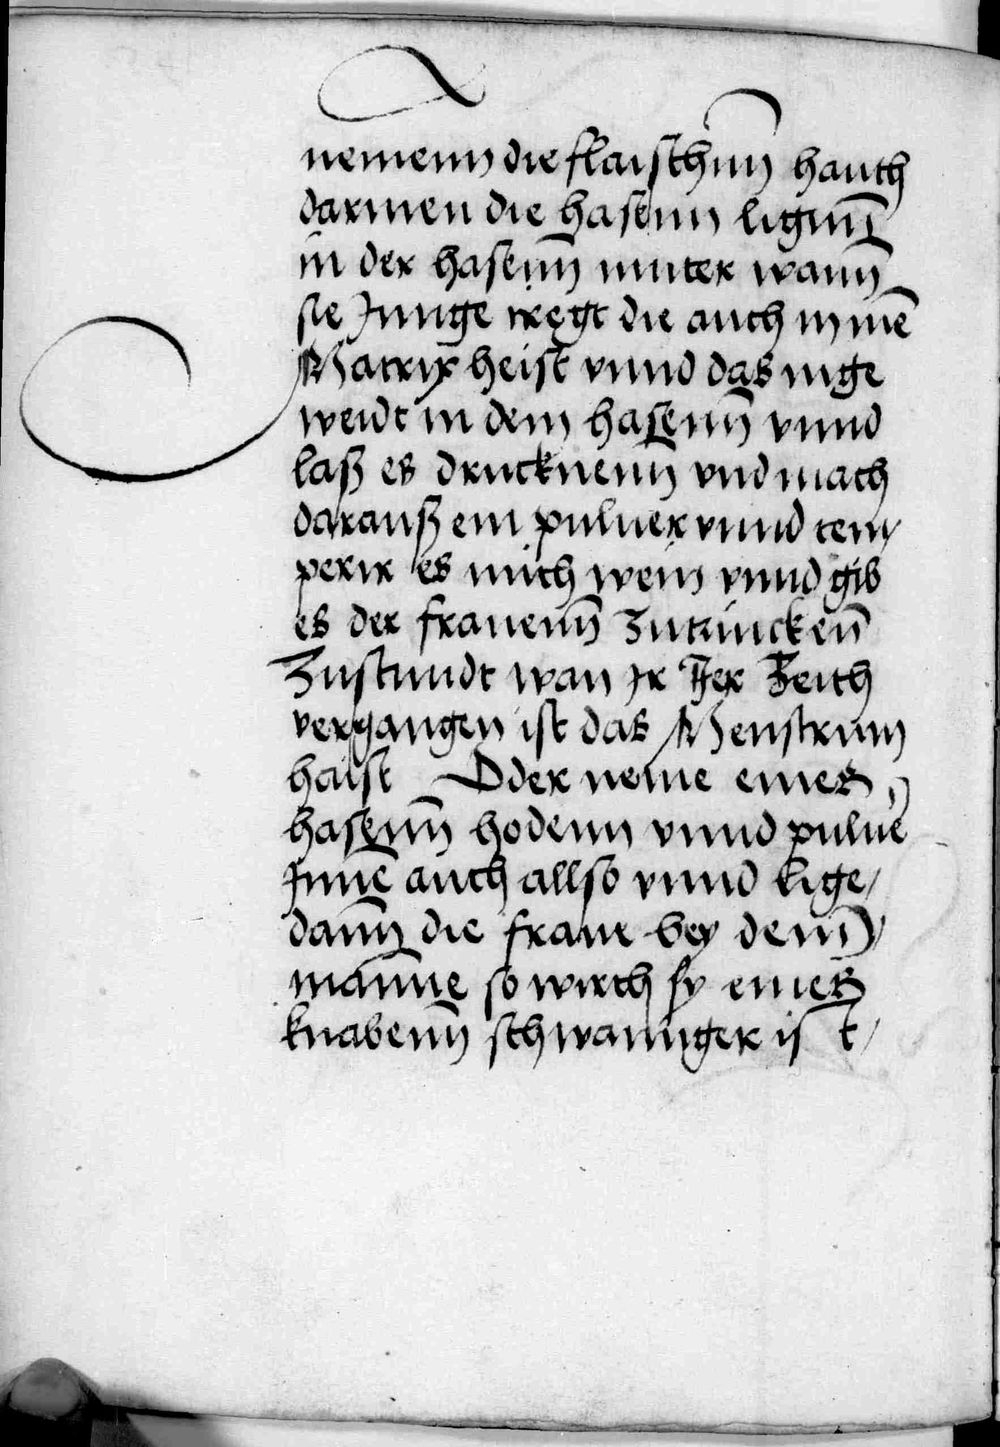 nemenn die flaischinn hauth
darinen die hasenn liginn
in der hasenn muter wann
sie Junge tregt die auch in mē
Matrix heist vnnd das inge
weidt in dem hasenn vnnd
laß es drucknenn vnd mach
darauß ein puluer vnnd tem/
perir es mith wein vnnd gib
es der frauenn Zutrincken̄
Zustundt wan Ir Jer Zeith
vergangen ist das Menstrum
haist Oder neme eines
hasenn hodenn vnnd puluē
Innē auch allso vnnd lige/
dann die fraue bey denn/
manne so wirth sy eines
knabenn schwannger ist/